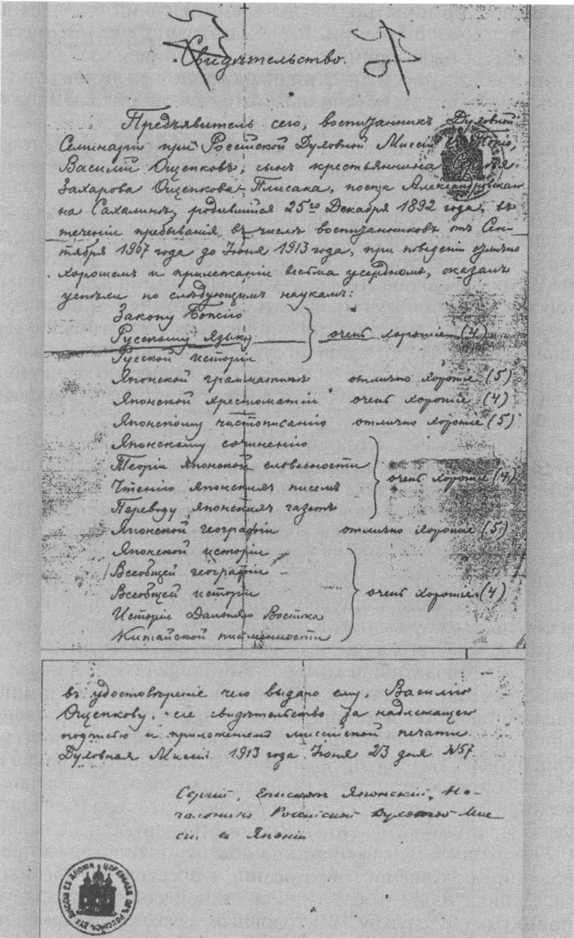 Свидѣтельство.
Предъявитель сего, воспитанникъ Духовной
Семинаріи при Россійской Духовной Миссіи въ Токіо,
Василій Ощепковъ, сынъ крестьянина
Захарова Ощепкова-Плисака, поста Александровскаго
на Сахалинѣ, родившійся 25го Декабря 1892 года, въ
теченіи пребыванія въ числѣ воспитанниковъ отъ Сен-
тября 1907 года до Іюня 1913 года, при поведеніи отлично
хорошемъ и прилежаніи весьма усердномъ, оказалъ
успѣхи по слѣдующимъ наукамъ:
Закону Божію
Русскому языку очень хорошіе (4)
Русской исторіи
Японской грамматикѣ отлично хорошіе (5)
Японской хрестоматіи очень хорошіе (4)
Японскому чистописанію отлично хорошіе (5)
Японскому сочиненію
Теоріи японской словесности
Чтенію японскихъ писемъ очень хорошіе (4)
Переводу японскихъ газетъ
Японской географіи отлично хорошіе (5)
Японской исторіи
Всеобщей географіи
Всеобщей исторіи очень хорошіе (4)
Исторіи Дальняго Востока
Китайской письменности
въ удостовѣреніе чего выдано ему, Василію
Ощепкову, сіе свидѣтельство за надлежащею
подписью и приложеніемъ миссійской печати.
Духовная Миссія. 1913 года Іюня 23 дня №57.
Сергій, Епископъ Японскій, На-
чальникъ Россійской Духовной Мис-
сіи въ Японіи